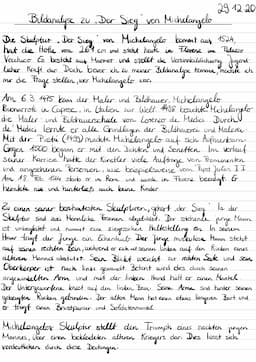 29.12.20
Bildanalyse zu "Der Sieg" von Michelangelo
Die Skulptur "Der Sieg" von Michelangelo kommt auf 1524,
hat die Höhe von 2,61 cm und steht heute in Florenz im Palazzo
Vecchio. Er besteht aus Marmor und stellt die
Kraft dar. Doch bevor ich zu meiner Bildanalyse komme, möchte ich
mir die Frage stellen, wer Michelangelo war.
Am 6.3.1475 kam der Maler und Bildhauer Michelangelo
Buonarroti da Caprese, in Italien zur Welt. 1488 besuchte Michelangelo
die Maler und Bildhauerschule von Lorenzo de Medici. Durch
de Medici lernte er alle Grundlagen der Bildhauerei und Malerei.
Mit der Pietà machte Michelangelo auf sich aufmerksam.
Gegen 1500 begann er mit den Studien und Sonetten. Im Verlauf
seiner Karriere hatte der Künstler viele Aufträge von Prominenten
und angesehenen Personen, wie beispielsweise vom Papst Julius II
Am 18. Feb. 1564 starb er in Rom und wurde in Florenz beerdigt. Er
heiratete nie und hinterließ auch keine Kinder.
Zu einen seiner berühmtesten Skulpturen, gehört "der Sieg". In der
Skulptur sind zwei Männliche Personen abgebildet. Der stehende junge Mann
ist unbekleidet und nimmt eine Haltung ein. In seinem
Haar trägt der junge ein Eichenlaub. Der junge muskulöse Mann steht
auf seinem rechten Bein, während er sich mit seinem linken auf den Rücken eines
älteren Mannes abstützt. Sein Blick weicht zur rechten Seite und sein
Oberkörper ist nach links gedreht. Betont wird dies durch seinen
angewinkelten Arm und mit der linken Hand hält er einen Mantel.
Der Untergeworfene kniet auf den linken Bein. Seine Arme sind hinter seinen
gebeugten Rücken gebunden. Der ältere Mann hat einen etwas längeren Bart und
er trägt einen Brustpanzer und
Michelangelos Skulptur stellt den Triumph eines nackten jungen
Mannes, über einen bekleideten älteren Kriegers dar. Dies lässt sich
verdeutlichen durch diese Deutungen.